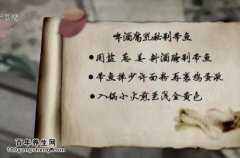 啤酒腐乳秘制带鱼
●用盐 葱 姜 料酒腌制带鱼
●带鱼拌少许面粉再裹鸡蛋液
●入锅小火煎至浅金黄色
百年养生网